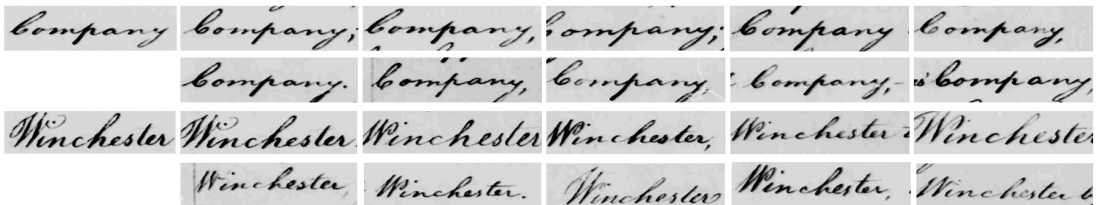 Company Company; Company, Company; Company Company,
Company. Company, Company, Company,- Company,
Winchester Winchester Winchester Winchester, Winchester Winchester
Winchester, Winchester. Winchester Winchester, Winchester